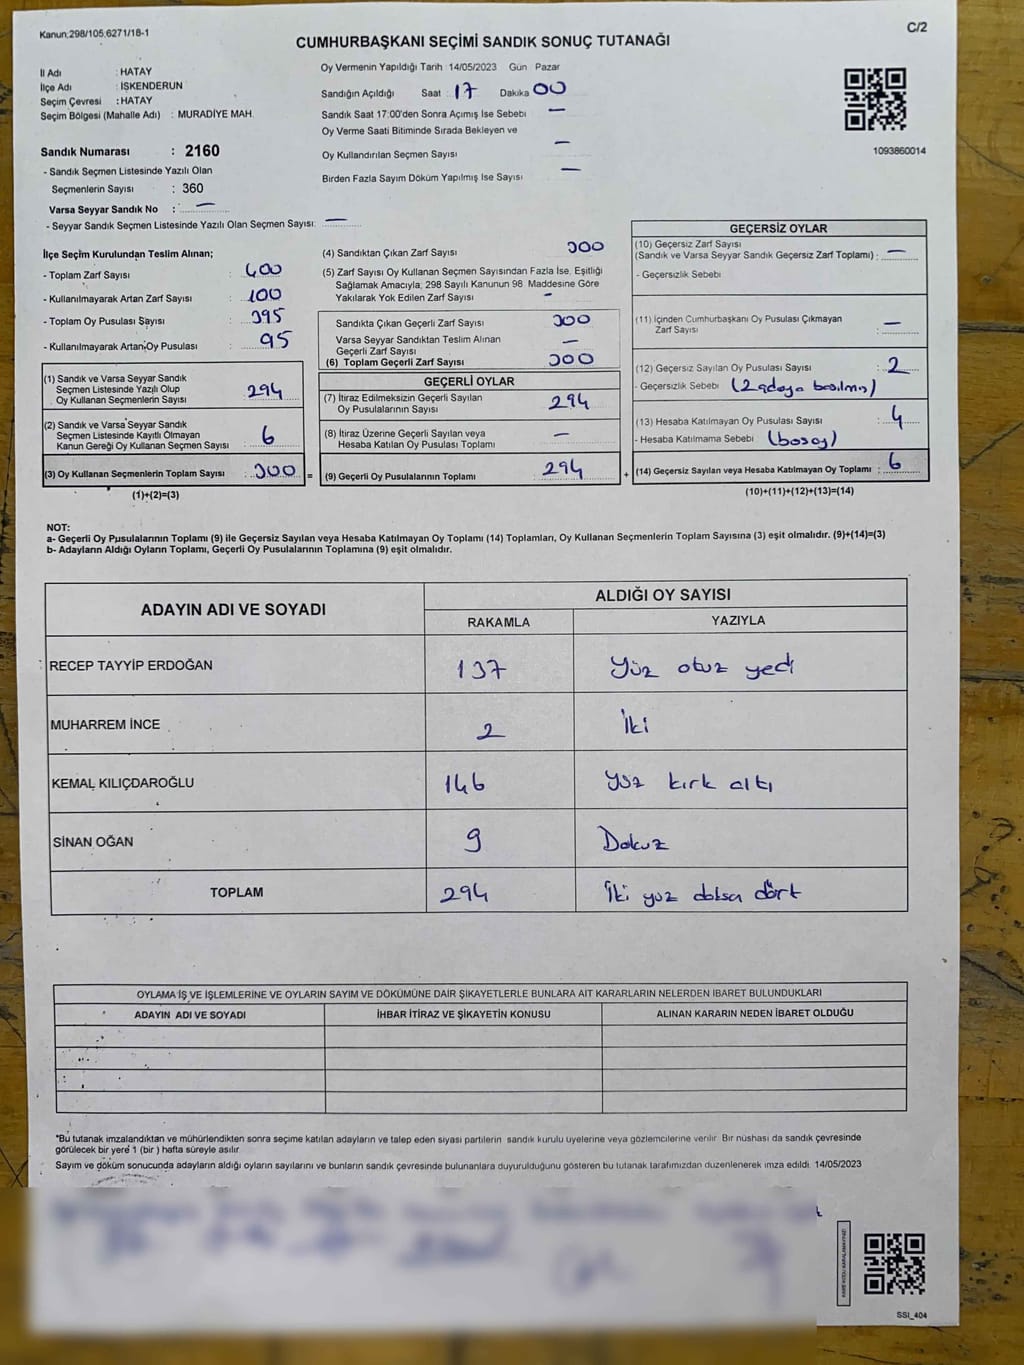 Kanun:298/105;6271/18-1
C/2
CUMHURBAŞKANI SEÇİMİ SANDIK SONUÇ TUTANAĞI
İl Adı : HATAY
İlçe Adı : İSKENDERUN
Seçim Çevresi : HATAY
Seçim Bölgesi (Mahalle Adı) : MURADİYE MAH.
Sandık Numarası : 2160
- Sandık Seçmen Listesinde Yazılı Olan
Seçmenlerin Sayısı : 360
Varsa Seyyar Sandık No : —
- Seyyar Sandık Seçmen Listesinde Yazılı Olan Seçmen Sayısı: —
Oy Vermenin Yapıldığı Tarih : 14/05/2023 Gün Pazar
Sandığın Açıldığı Saat : 17 Dakika 00
Sandık Saat 17:00'den Sonra Açımış İse Sebebi —
Oy Verme Saati Bitiminde Sırada Bekleyen ve
Oy Kullandırılan Seçmen Sayısı —
Birden Fazla Sayım Döküm Yapılmış İse Sayısı —
1093860014
İlçe Seçim Kurulundan Teslim Alınan;
- Toplam Zarf Sayısı : 400
- Kullanılmayarak Artan Zarf Sayısı : 100
- Toplam Oy Pusulası Sayısı : 395
- Kullanılmayarak Artan Oy Pusulası : 95
(1) Sandık ve Varsa Seyyar Sandık
Seçmen Listesinde Yazılı Olup
Oy Kullanan Seçmenlerin Sayısı 294
(2) Sandık ve Varsa Seyyar Sandık
Seçmen Listesinde Kayıtlı Olmayan
Kanun Gereği Oy Kullanan Seçmen Sayısı 6
(3) Oy Kullanan Seçmenlerin Toplam Sayısı : 300 =
(1)+(2)=(3)
(4) Sandıktan Çıkan Zarf Sayısı 300
(5) Zarf Sayısı Oy Kullanan Seçmen Sayısından Fazla İse, Eşitliği
Sağlamak Amacıyla; 298 Sayılı Kanunun 98 Maddesine Göre
Yakılarak Yok Edilen Zarf Sayısı -
Sandıkta Çıkan Geçerli Zarf Sayısı 300
Varsa Seyyar Sandıktan Teslim Alınan
Geçerli Zarf Sayısı —
(6) Toplam Geçerli Zarf Sayısı 300
GEÇERLİ OYLAR
(7) İtiraz Edilmeksizin Geçerli Sayılan
Oy Pusulalarının Sayısı 294
(8) İtiraz Üzerine Geçerli Sayılan veya
Hesaba Katılan Oy Pusulası Toplamı —
(9) Geçerli Oy Pusulalarının Toplamı 294 +
GEÇERSİZ OYLAR
(10) Geçersiz Zarf Sayısı
(Sandık ve Varsa Seyyar Sandık Geçersiz Zarf Toplamı) : —
- Geçersizlik Sebebi
(11) İçinden Cumhurbaşkanı Oy Pusulası Çıkmayan
Zarf Sayısı : —
(12) Geçersiz Sayılan Oy Pusulası Sayısı : 2
- Geçersizlik Sebebi (2 adaya basılmış)
(13) Hesaba Katılmayan Oy Pusulası Sayısı : 4
- Hesaba Katılmama Sebebi (boşoy)
(14) Geçersiz Sayılan veya Hesaba Katılmayan Oy Toplamı : 6
(10)+(11)+(12)+(13)=(14)
NOT:
a- Geçerli Oy Pusulalarının Toplamı (9) ile Geçersiz Sayılan veya Hesaba Katılmayan Oy Toplamı (14) Toplamları, Oy Kullanan Seçmenlerin Toplam Sayısına (3) eşit olmalıdır. (9)+(14)=(3)
b- Adayların Aldığı Oyların Toplamı, Geçerli Oy Pusulalarının Toplamına (9) eşit olmalıdır.
ADAYIN ADI VE SOYADI
ALDIĞI OY SAYISI
RAKAMLA YAZIYLA
RECEP TAYYİP ERDOĞAN 137 Yüz otuz yedi
MUHARREM İNCE 2 İki
KEMAL KILIÇDAROĞLU 146 Yüz kırk altı
SİNAN OĞAN 9 Dokuz
TOPLAM 294 İki yüz doksan dört
OYLAMA İŞ VE İŞLEMLERİNE VE OYLARIN SAYIM VE DÖKÜMÜNE DAİR ŞİKAYETLERLE BUNLARA AİT KARARLARIN NELERDEN İBARET BULUNDUKLARI
ADAYIN ADI VE SOYADI İHBAR İTİRAZ VE ŞİKAYETİN KONUSU ALINAN KARARIN NEDEN İBARET OLDUĞU
*Bu tutanak imzalandıktan ve mühürlendikten sonra seçime katılan adayların ve talep eden siyasi partilerin sandık kurulu üyelerine veya gözlemcilerine verilir. Bir nüshası da sandık çevresinde
görülecek bir yere 1 (bir) hafta süreyle asılır
Sayım ve döküm sonucunda adayların aldığı oyların sayılarını ve bunların sandık çevresinde bulunanlara duyurulduğunu gösteren bu tutanak tarafımızdan düzenlenerek imza edildi. 14/05/2023
KARE KODU KARALAMAYINIZ!
SSI_404